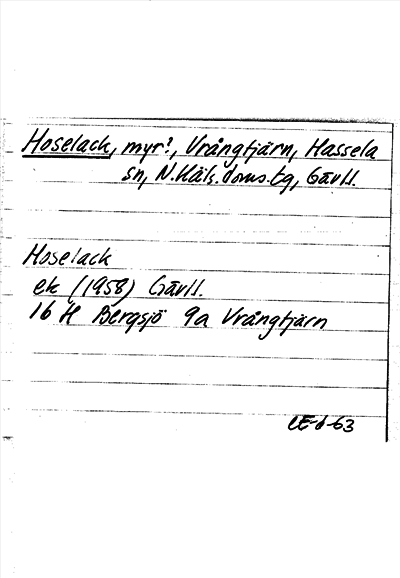 Hoselack, myr?, Vrångtjärn, Hassela
sn, N.Häls.doms.tg, Gävll.
Hoselack
ek (1958) Gävll.
16 H Bergsjö 9a Vrångtjärn
CE-d-63